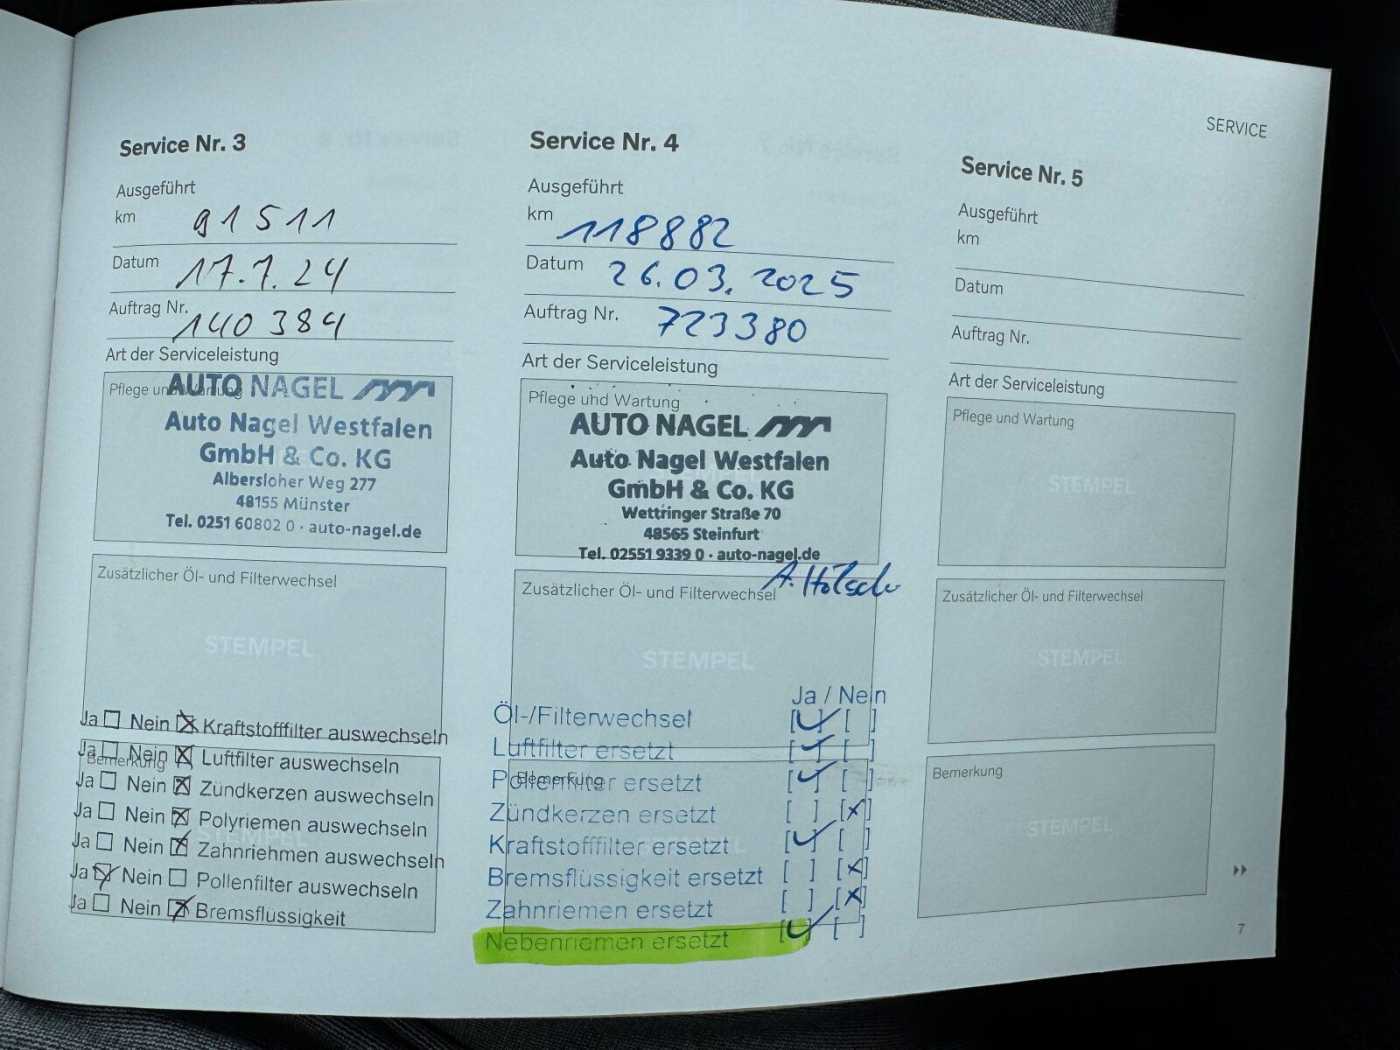 SERVICE
Service Nr. 3
Ausgeführt
km 91511
Datum 17.7.24
Auftrag Nr. 140384
Art der Serviceleistung
Pflege und Wartung
AUTO NAGEL
Auto Nagel Westfalen
GmbH & Co. KG
Albersloher Weg 277
48155 Münster
Tel. 0251 60802 0 · auto-nagel.de
Zusätzlicher Öl- und Filterwechsel
STEMPEL
Ja Nein Kraftstofffilter auswechseln
Bemerkung
Ja Nein Luftfilter auswechseln
Ja Nein Zündkerzen auswechseln
Ja Nein Polyriemen auswechseln
STEMPEL
Ja Nein Zahnriehmen auswechseln
Ja Nein Pollenfilter auswechseln
Ja Nein Bremsflüssigkeit
Service Nr. 4
Ausgeführt
km 118882
Datum 26.03.2025
Auftrag Nr. 723380
Art der Serviceleistung
Pflege und Wartung
AUTO NAGEL
Auto Nagel Westfalen
GmbH & Co. KG
Wettringer Straße 70
48565 Steinfurt
Tel. 02551 9339 0 · auto-nagel.de
Zusätzlicher Öl- und Filterwechsel
STEMPEL
Ja / Nein
Öl-/Filterwechsel [ ] [ ]
Luftfilter ersetzt [ ] [ ]
Bemerkung
Pollenfilter ersetzt [ ] [ ]
Zündkerzen ersetzt [ ] [x]
Kraftstofffilter ersetzt [ ] [ ]
Bremsflüssigkeit ersetzt [ ] [x]
Zahnriemen ersetzt [ ] [x]
Nebenriemen ersetzt [ ] [ ]
Service Nr. 5
Ausgeführt
km
Datum
Auftrag Nr.
Art der Serviceleistung
Pflege und Wartung
STEMPEL
Zusätzlicher Öl- und Filterwechsel
STEMPEL
Bemerkung
STEMPEL
7